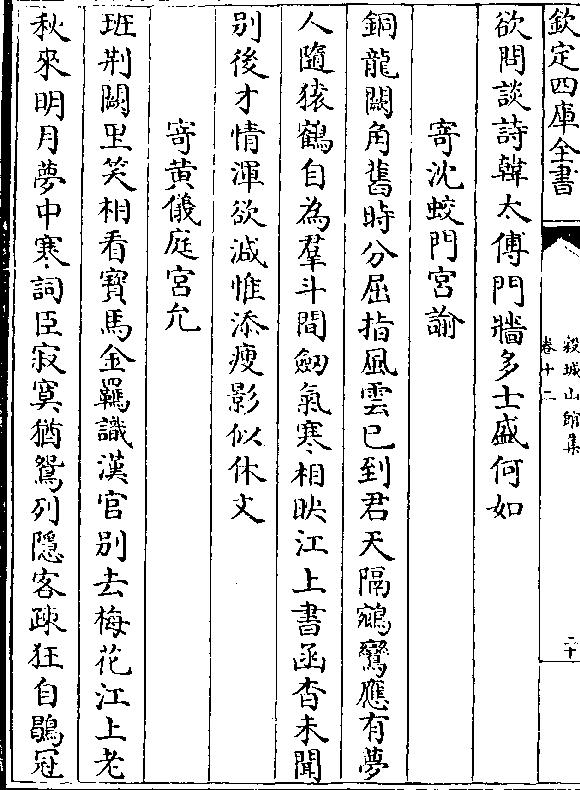 欽定四庫全書
穀城山館集
卷十二
二十
欲問談詩韓太傅門牆多士盛何如
寄沈蛟門宮諭
銅龍闕角舊時分屈指風雲已到君天隔鵷鸞應有夢
人隨猿鶴自為羣斗間劒氣寒相映江上書函杳未聞
别後才情渾欲減惟添瘦影似休文
寄黄儀庭宮允
班荆闕里笑相看寶馬金羈識漢官别去梅花江上老
秋來明月夢中寒詞臣寂寞猶鴛列隱客疎狂自鶡冠